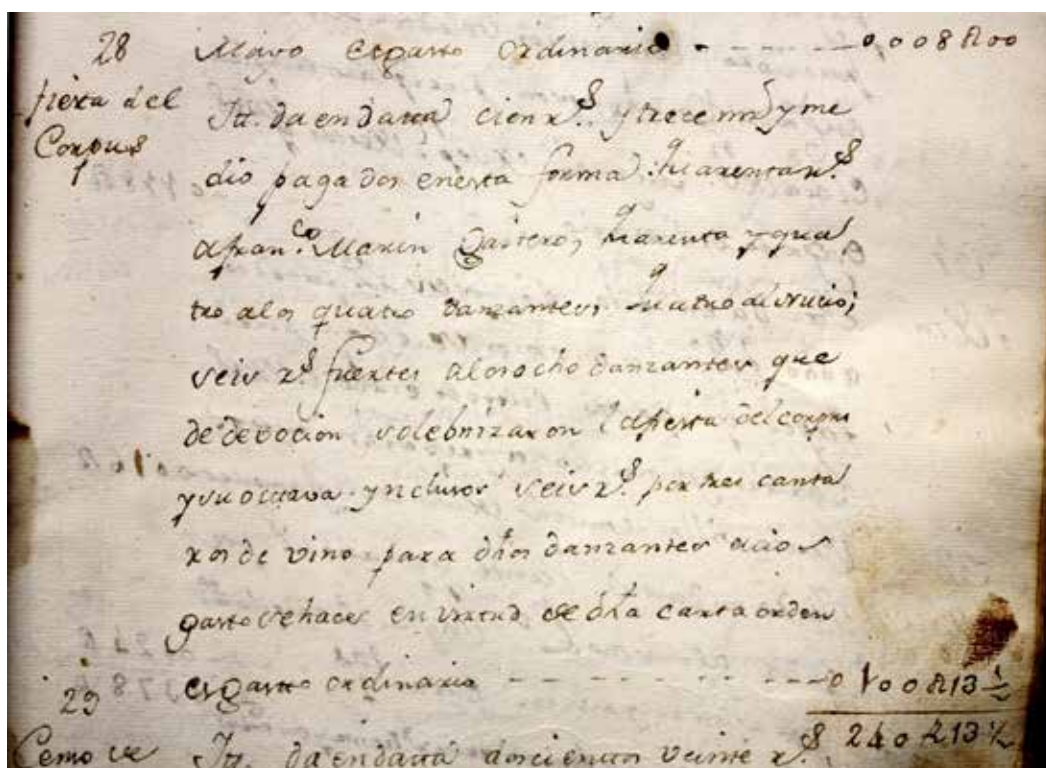 28 Mayo es gasto ordinario - - - - - - 0.008 R 00
fiesta del
Corpus
Itt. da en data cien rs. y trece mrs y me
dio pagados en esta forma. quarenta rs.
a Franco. Marin Gaitero, quarenta y qua
tro alos quatro danzantes, quatro al
seis rs. fuertes alos ocho danzantes que
de devocion solebnizaron la fiesta del corpus
y su octava ynclusos seis rs. por tres canta
ros de vino para dhos danzantes
gasto se hace en virtud de dha carta orden
es gasto ordinario - - - - - - 0 100 R 13 ½
29 240 R 13 ½
Itt. da en data docientos veinte rs.